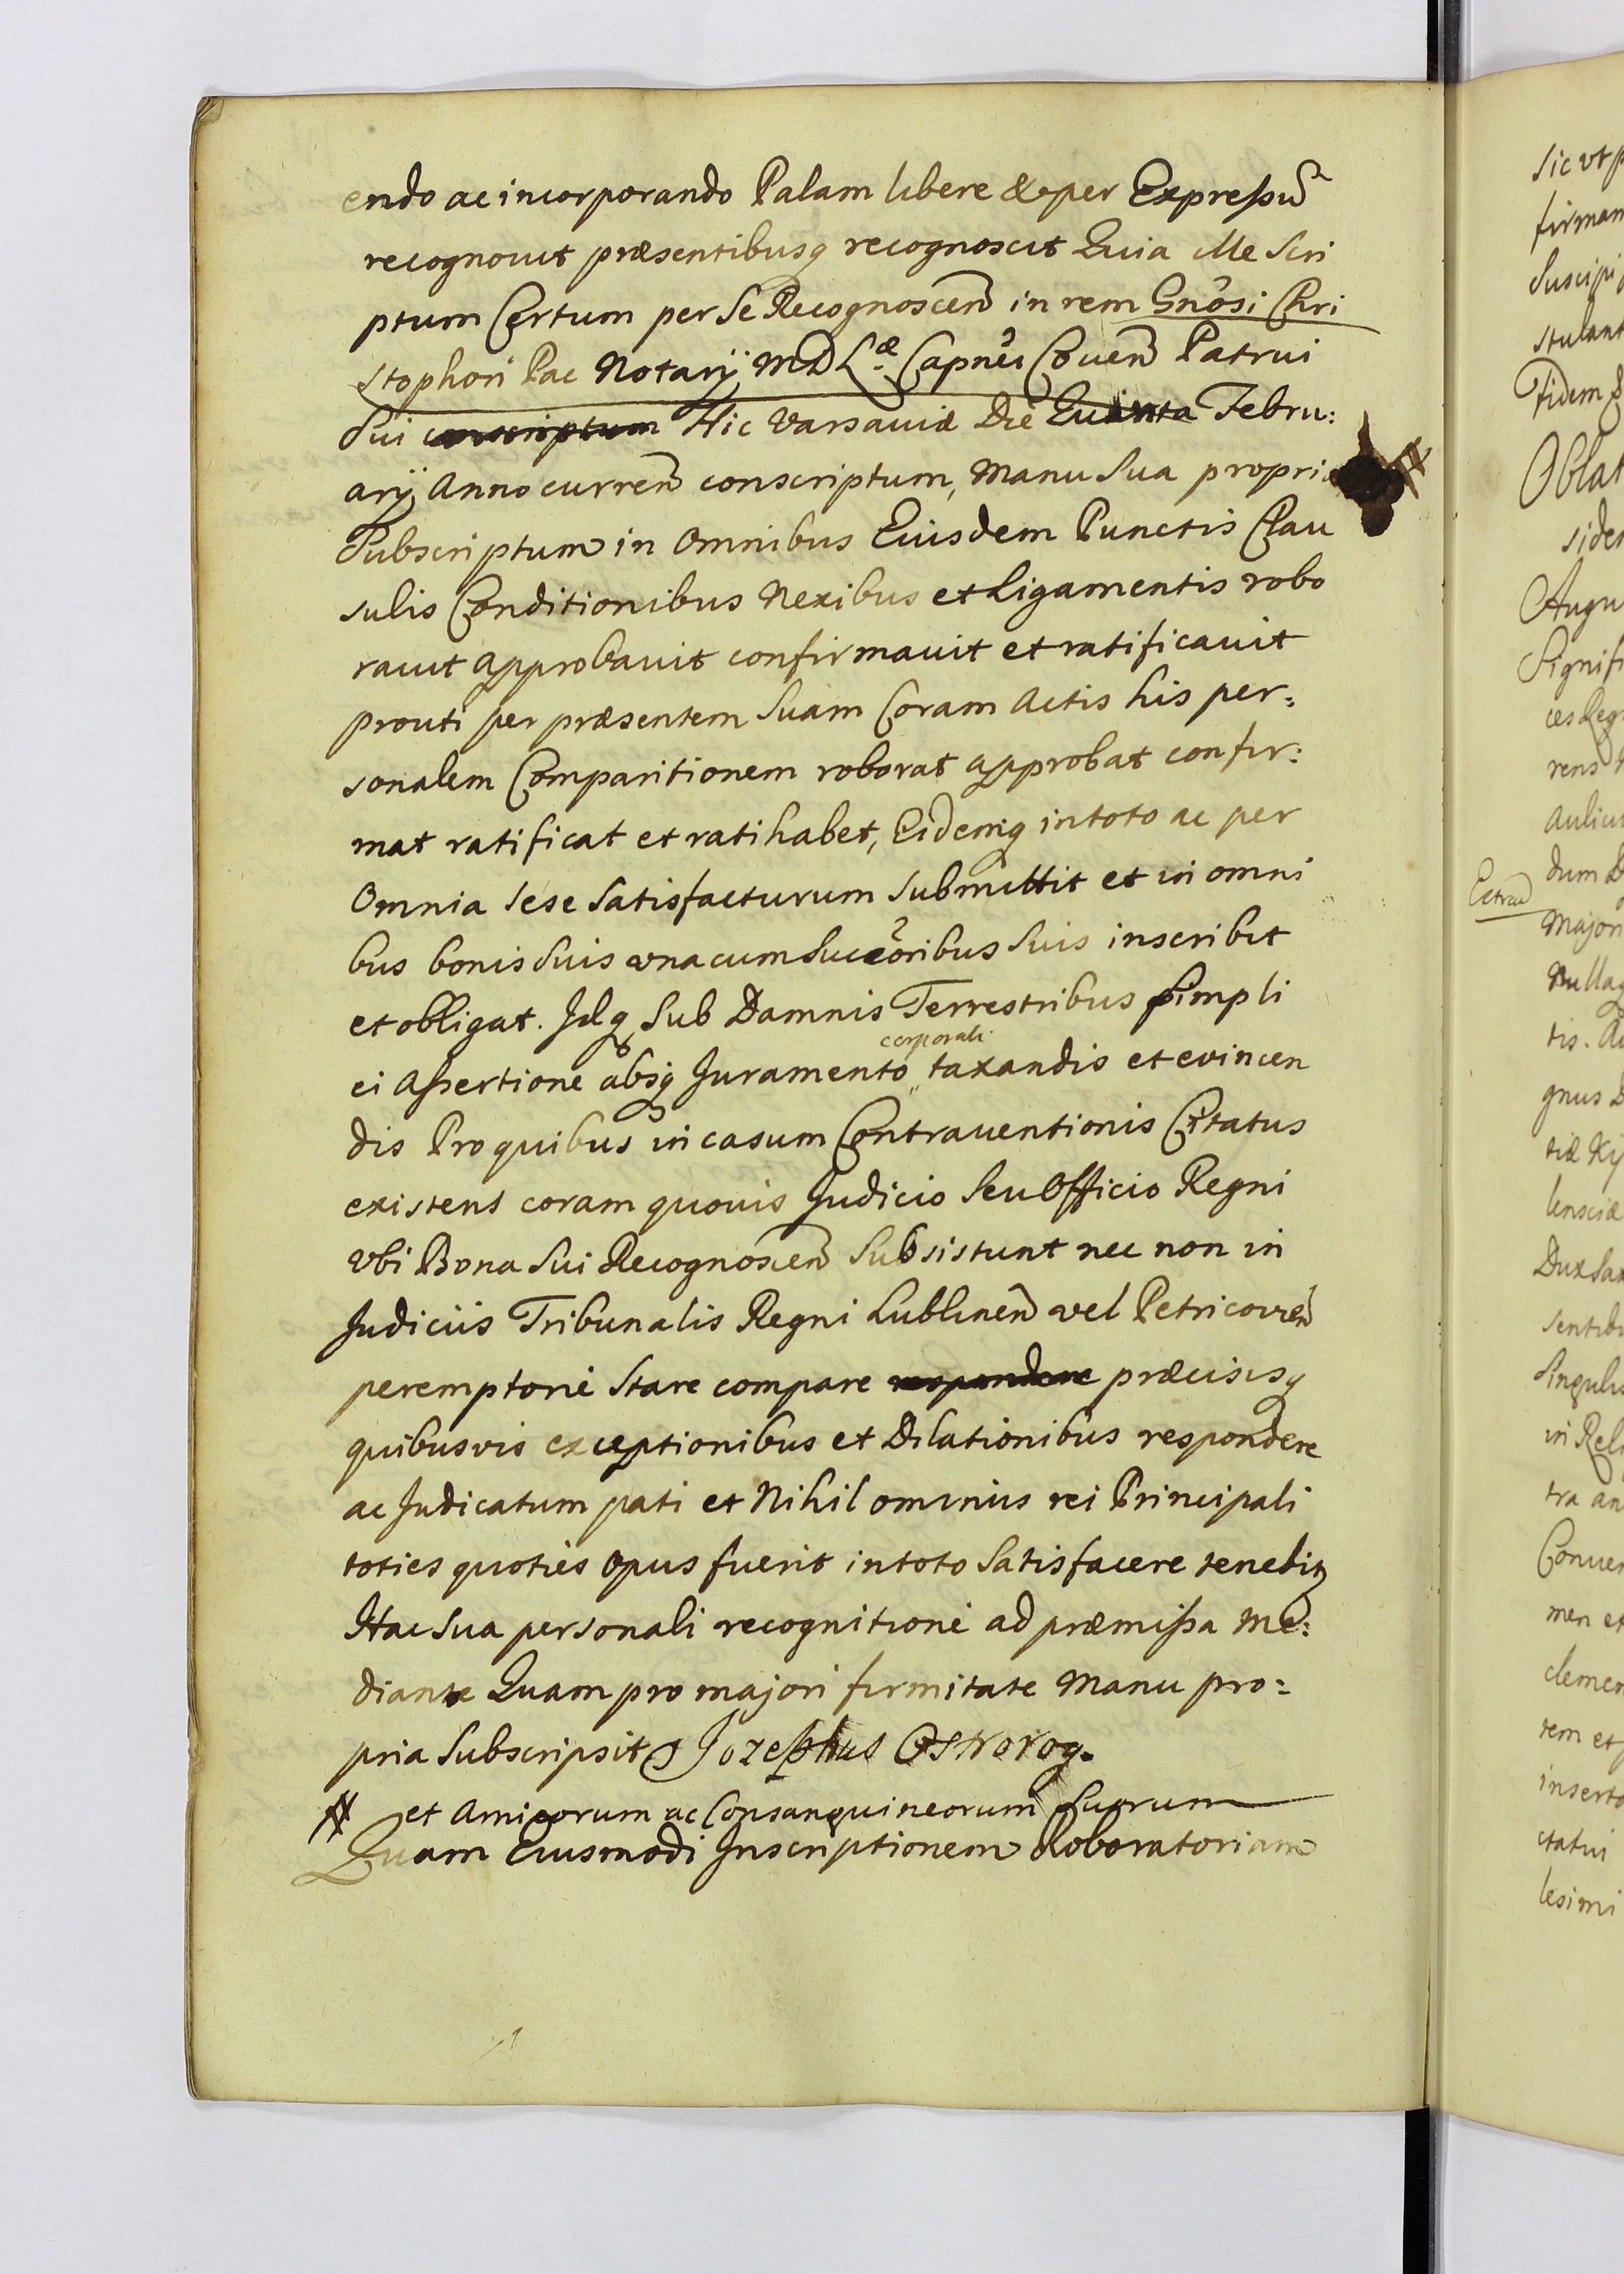 endo ac incorporando Palam libere & per Expressũ
recognouit præsentibusq recognoscit Quia Ille Scri
ptum Certum per Se Recognoscen̄ in rem Gnôsi Chri
stophori Pac Notarÿ MDLæ Capnei Couen̄ Patrui
Sui conscriptum Hic Varsauiæ Die Quinta Febru:
arÿ Anno curren̄ conscriptum, Manu Sua propria #
Subscriptum in Omnibus Eiusdem Punctis Clau
sulis Conditionibus Nexibus et Ligamentis robo
rauit approbauit confirmauit et ratificauit
prouti per præsentem Suam Coram Actis his per:
sonalem Comparitionem roborat approbat confir:
mat ratificat et ratihabet, Eidemq in toto ac per
Omnia Sese Satisfacturum Submittit et in omni
bus bonis Suis vna cum Succôribus Suis inscribit
et obligat. Idq Sub Damnis Terrestribus Simpli
corporali
ci Assertione absq Juramento taxandis et evincen
dis Pro quibus in casum Contrauentionis Citatus
existens coram quouis Judicio Seu Officio Regni
Vbi Bona Sui Recognoscen̄ Subsistunt nec non in
Judiciis Tribunalis Regni Lublinen̄ vel Petricovien̄
peremptorie Stare compare respondere præcisisq
quibusvis exceptionibus et Dilationibus respondere
ac Judicatum pati et Nihil ominus rei Principali
toties quoties Opus fuerit in toto Satisfacere tenebit
Hac Sua personali recognitione ad præmissa Me:
diante Quam pro majori firmitate Manu pro:
pria Subscripsit Jozephus Ostrorog.
# et Amicorum ac Consanguineorum Suorum
Quam Eiusmodi Inscriptionem Roboratoriam
Sic vt p
firman
Suscipi
stulant
Fidem &
Oblat
sider
Augu
Signifi
ces Reg
rens
Aulicus
dum D
Extrad
Majori
Nullaq
tis. Ac
gnus D
tiæ Kij
lensciæ
Dux Sax
sentibu
Singulis
in Rela
tra an
Conuen
men et
clemen
tem et
inserto
ctatui
lesimi